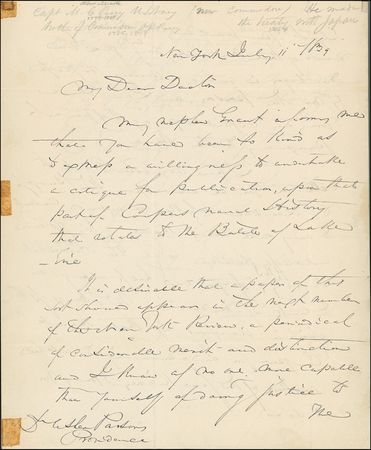 Capt. U.S. Navy (now Commodore) He made
brother of Commodore the treaty with Japan
1854
New York July 11th /39
My Dear Doctor
My nephew Grant informs me
that you have been so kind as
to express a willingness to undertake
a critique for publication, upon that
part of Coopers naval History
that relates to the Battle of Lake
Erie
It is desirable that a paper of this
sort should appear in the next number
of the New York Review, a periodical
of considerable merit and distinction
and I know of no one more capable
than yourself of doing justice to
the
Dr Usher Parsons
Providence